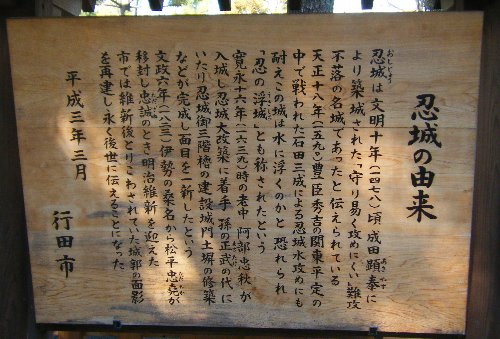 忍城の由来
忍城は文明十年（一四七八）頃成田顕泰に
より築城された「守り易く攻めにくい」難攻
不落の名城であったと伝えられている
天正十八年（一五九〇）豊臣秀吉の関東平定の
中で戦われた石田三成による忍城水攻めにも
耐えこの城は水に浮くのかと恐れられ
「忍の浮城」とも称されたという
寛永十六年（一六三九）時の老中阿部忠秋が
入城し忍城大改築に着手 孫の正武の代に
いたり忍城御三階櫓の建設城門土塀の修築
などが完成し面目を一新したという
文政六年（一八二三）伊勢の桑名から松平忠堯が
移封し忠誠のとき明治維新を迎えた
市では維新後とりこわされていた城郭の面影
を再建し永く後世に伝えることになった
平成三年三月
行田市